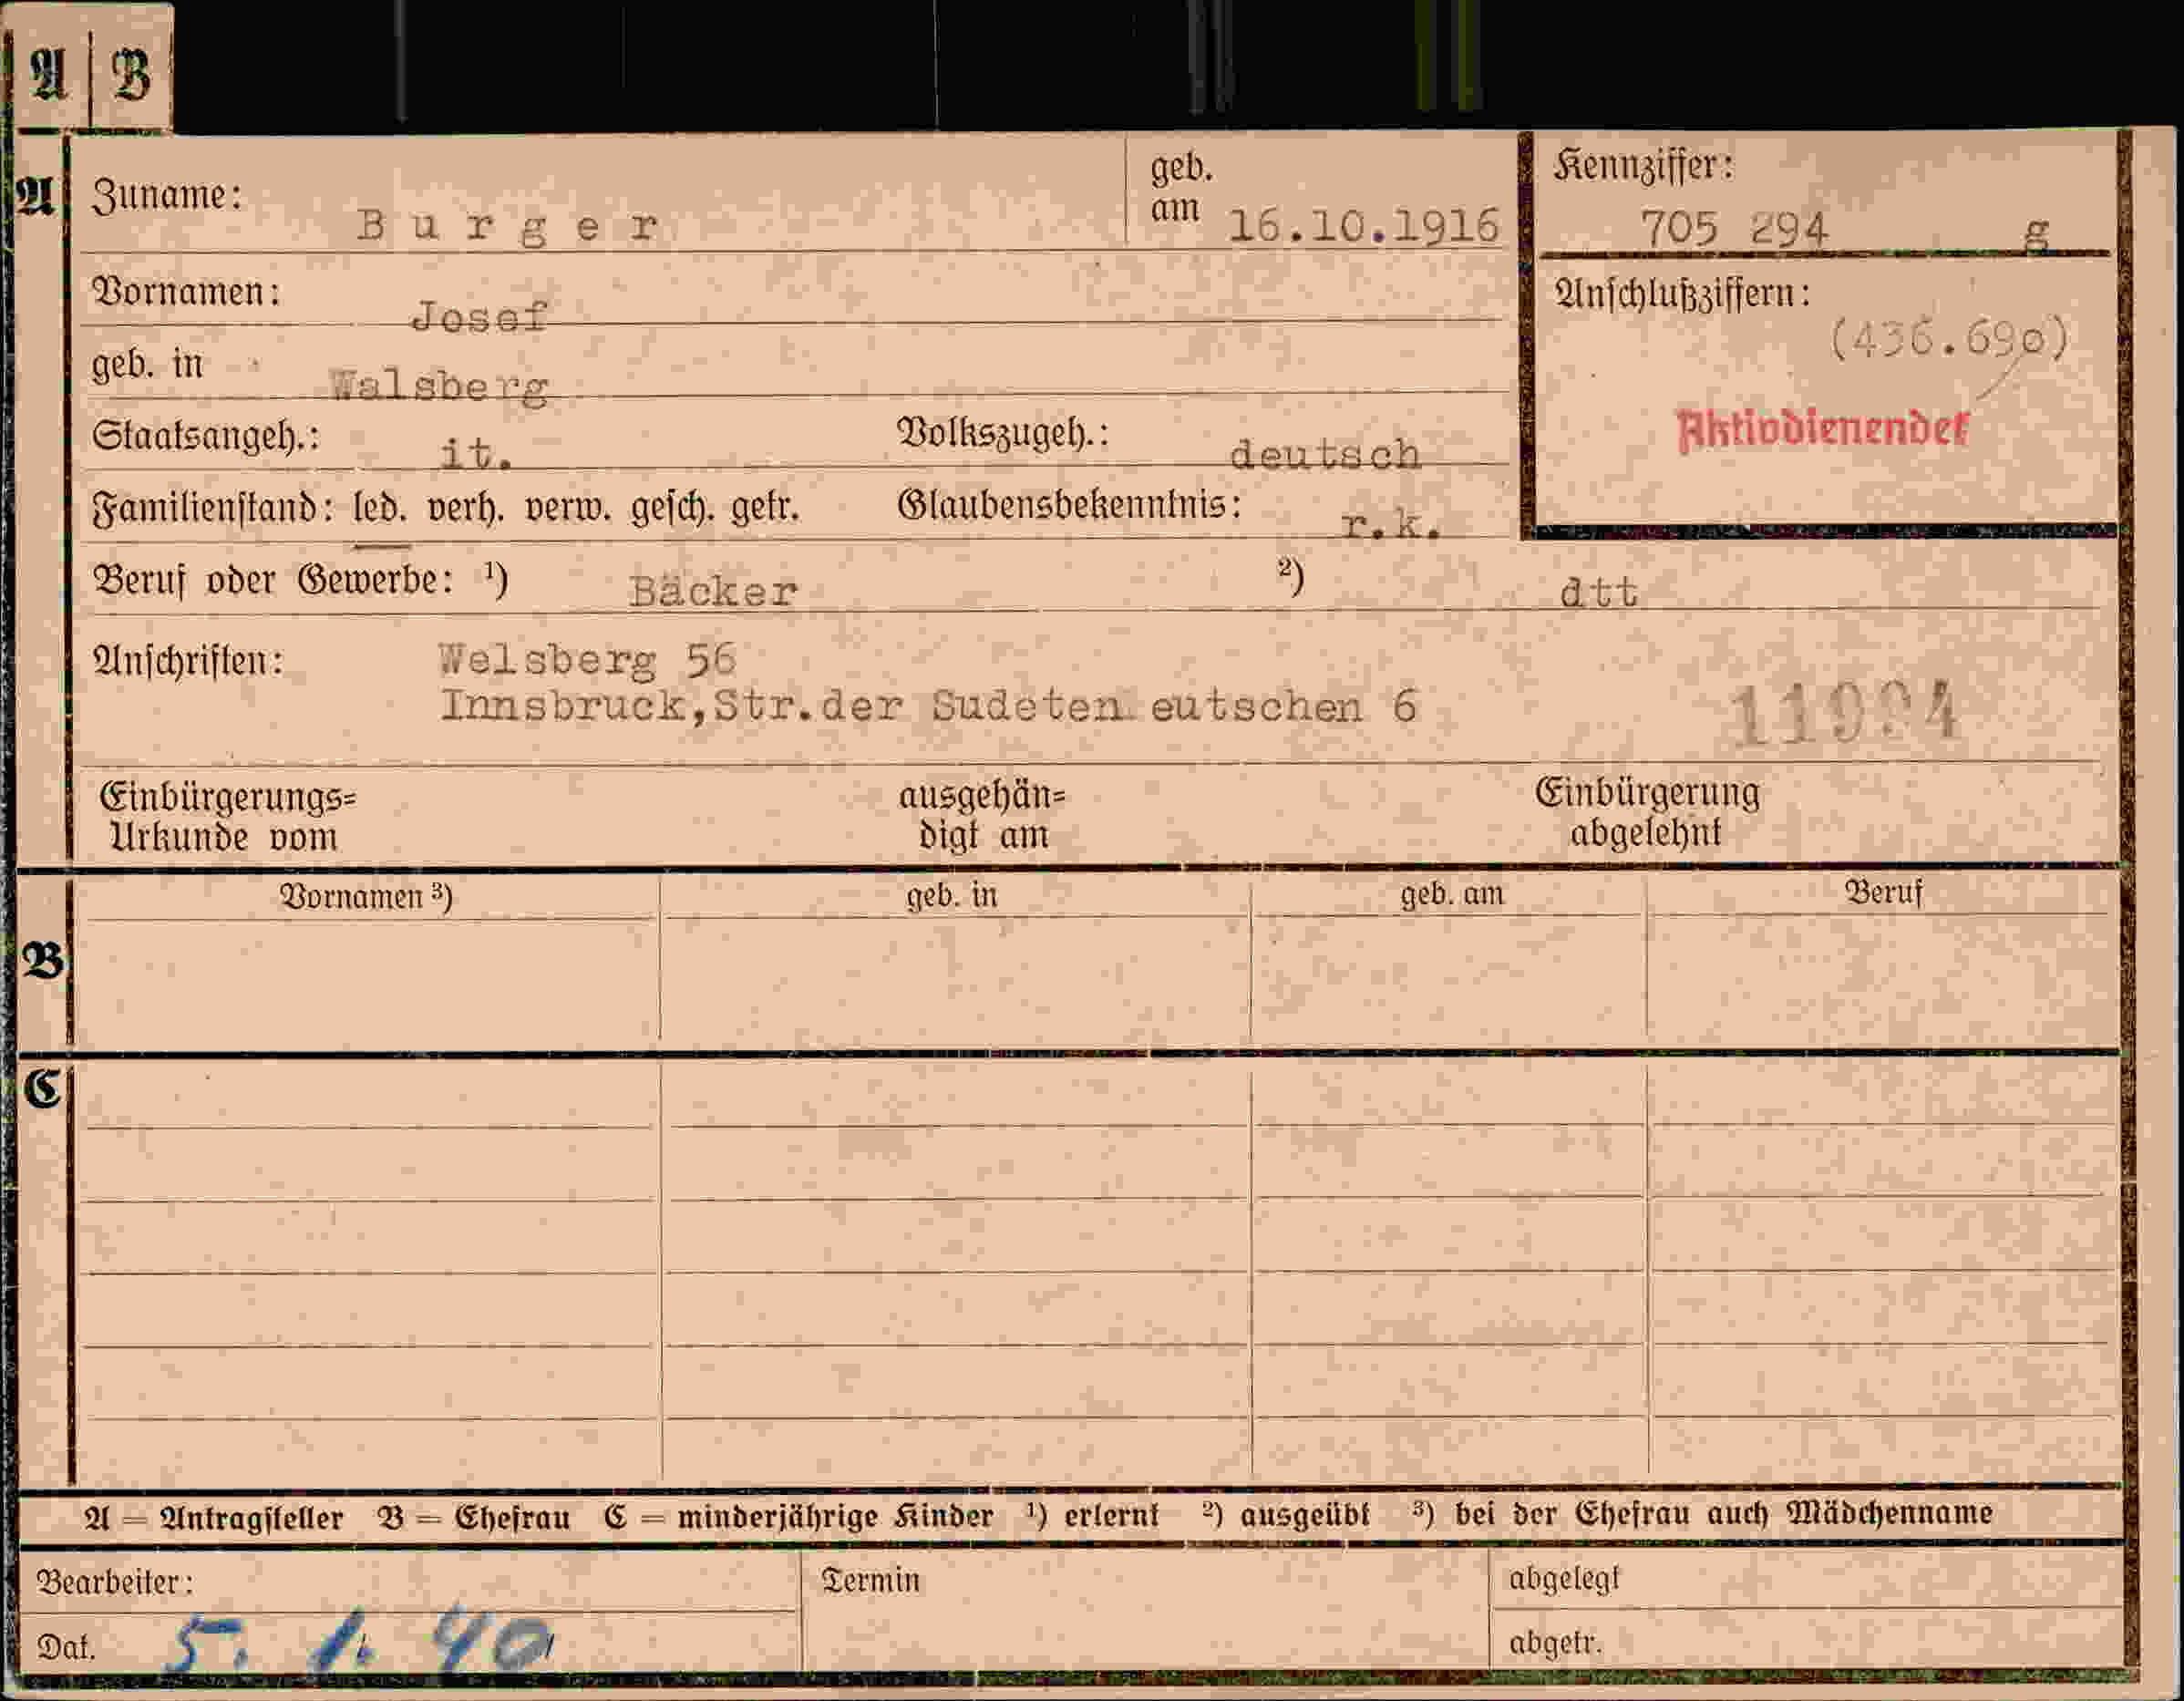 A B
A Zuname: Burger geb. am 16.10.1916 Kennziffer: 705 294 g
Vornamen: Josef Anschlußziffern: (436.690)
geb. in Walsberg
Aktivdienender
Staatsangeh.: it. Volkszugeh.: deutsch
Familienstand: led. verh. verw. gesch. getr. Glaubensbekenntnis: r.k.
Beruf oder Gewerbe: ¹) Bäcker ²) dtt
Anschriften: Welsberg 56
Innsbruck,Str.der Sudeten eutschen 6
Einbürgerungs= ausgehän= Einbürgerung
Urkunde vom digt am abgelehnt
Vornamen ³) geb. in geb. am Beruf
B
C
A = Antragsteller B = Ehefrau C = minderjährige Kinder ¹) erlernt ²) ausgeübt ³) bei der Ehefrau auch Mädchenname
Bearbeiter: Termin abgelegt
Dat. 5. 1. 40 abgetr.